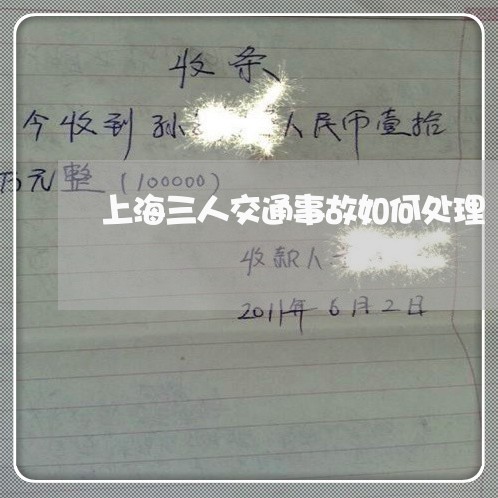 收条
今收到孙 人民币壹拾
万元整（100000）
上海三人交通事故如何处理
收款人
2011年6月2日